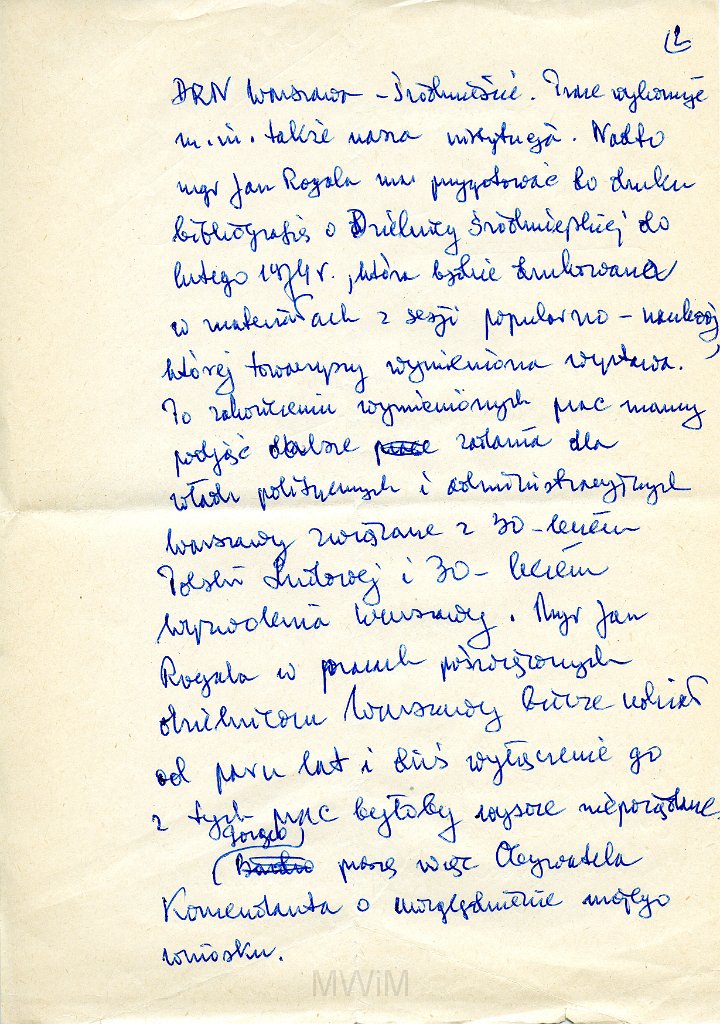 2
DRN Warszawa – Śródmieście. Prace wykonuje
m.in. także nasza instytucja. Nadto
mgr Jan Rogala ma przygotować do druku
bibliografię o Dzielnicy Śródmiejskiej do
lutego 1974 r., która będzie drukowana
w materiałach z sesji popularno – naukowej,
której towarzyszy wymieniona wystawa.
Po zakończeniu wymienionych prac mamy
podjąć dalsze prace zadania dla
władz politycznych i administracyjnych
Warszawy związane z 30-leciem
Polski Ludowej i 30-leciem
wyzwolenia Warszawy. Mgr Jan
Rogala w pracach poświęconych
dzielnicom Warszawy bierze udział
od paru lat i dziś wyłączenie go
z tych prac byłoby wysoce niepożądane.
Gorąco
(Bardzo) proszę więc Obywatela
Komendanta o uwzględnienie mojego
wniosku.
MWiM